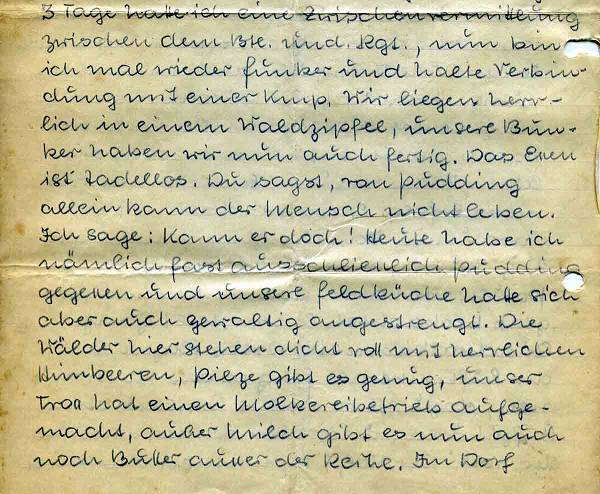 3 Tage hatte ich eine Zwischenvermittlung
zwischen dem Btl. und Rgt., nun bin
ich mal wieder Funker und halte Verbin-
dung mit einer Kmp. Wir liegen herr-
lich in einem Waldzipfel, unsere Bun-
ker haben wir nun auch fertig. Das Essen
ist tadellos. Du sagst, von Pudding
allein kann der Mensch nicht leben.
Ich sage: Kann er doch! Heute habe ich
nämlich fast ausschließlich Pudding
gegessen und unsere Feldküche hatte sich
aber auch gewaltig angestrengt. Die
Wälder hier stehen dicht voll mit herrlichen
Himbeeren, Pilze gibt es genug, unser
Troß hat einen Molkereibetrieb aufge-
macht, außer Milch gibt es nun auch
noch Butter außer der Reihe. Im Dorf